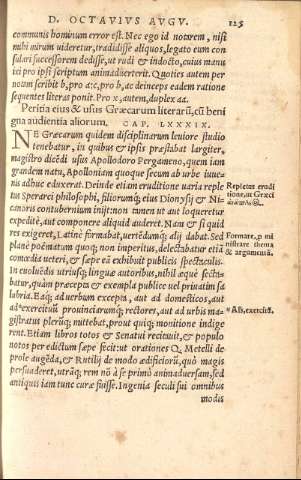 D. OCTAVIVS AVGV. 125
communis hominum error est. Nec ego id notarem, nisi
mihi mirum uideretur, tradidisse aliquos, legato eum con
sulari successorem dedisse, ut rudi & indocto, cuius manu
ici pro ipsi scriptum animaduerterit. Quoties autem per
notum scribit b, pro a; c, pro b, ac deinceps eadem ratione
sequentes literas ponit. Pro x, autem, duplex aa.
Peritia eius & usus Græcarum literarũ, cũ beni
gna audientia aliorum. CAP. LXXXIX.
NE Græcarum quidem disciplinarum leuiore studio
tenebatur, in quibus & ipsis præstabat largiter,
magistro dicẽdi usus Apollodoro Pergameno, quem iam
grandem natu, Apolloniam quoque secum ab urbe iuue
nis adhuc eduxerat. Deinde etiam eruditione uaria reple
tus Sperarei philosophi, filiorumq; eius Dionysij & Ni
canoris contubernium inijt: non tamen ut aut loqueretur
expeditè, aut componere aliquid auderet. Nam & si quid
res exigeret, Latinè formabat, uertendumq; alij dabat. Sed
planè poëmatum quoq; non imperitus, delectabatur etiã
comœdia ueteri, & sæpe eã exhibuit publicis spectaculis.
In euoluẽdis utriusq; linguæ autoribus, nihil æquè secta-
batur, quàm præcepta & exempla publicè uel priuatim sa
lubria. Eaq; ad uerbum excepta, aut ad domesticos, aut
ad *exercituũ prouinciarumq; rectores, aut ad urbis ma-
gistratus plerũq; mittebat, prout quiq; monitione indige
rent. Etiam libros totos & Senatui recitauit, & populo
notos per edictum sæpe fecit: ut orationes Q. Metelli de
prole augẽda, & Rutilij de modo ædificiorũ, quò magis
persuaderet, utrãq; rem nõ à se primò animaduersam, sed
antiquis iam tunc curæ fuisse. Ingenia seculi sui omnibus
modis
Repletus erudi
tione, ut Græci
Formare, p mi
nistrare thema
& argumentũ.
*Als, exercitũ.